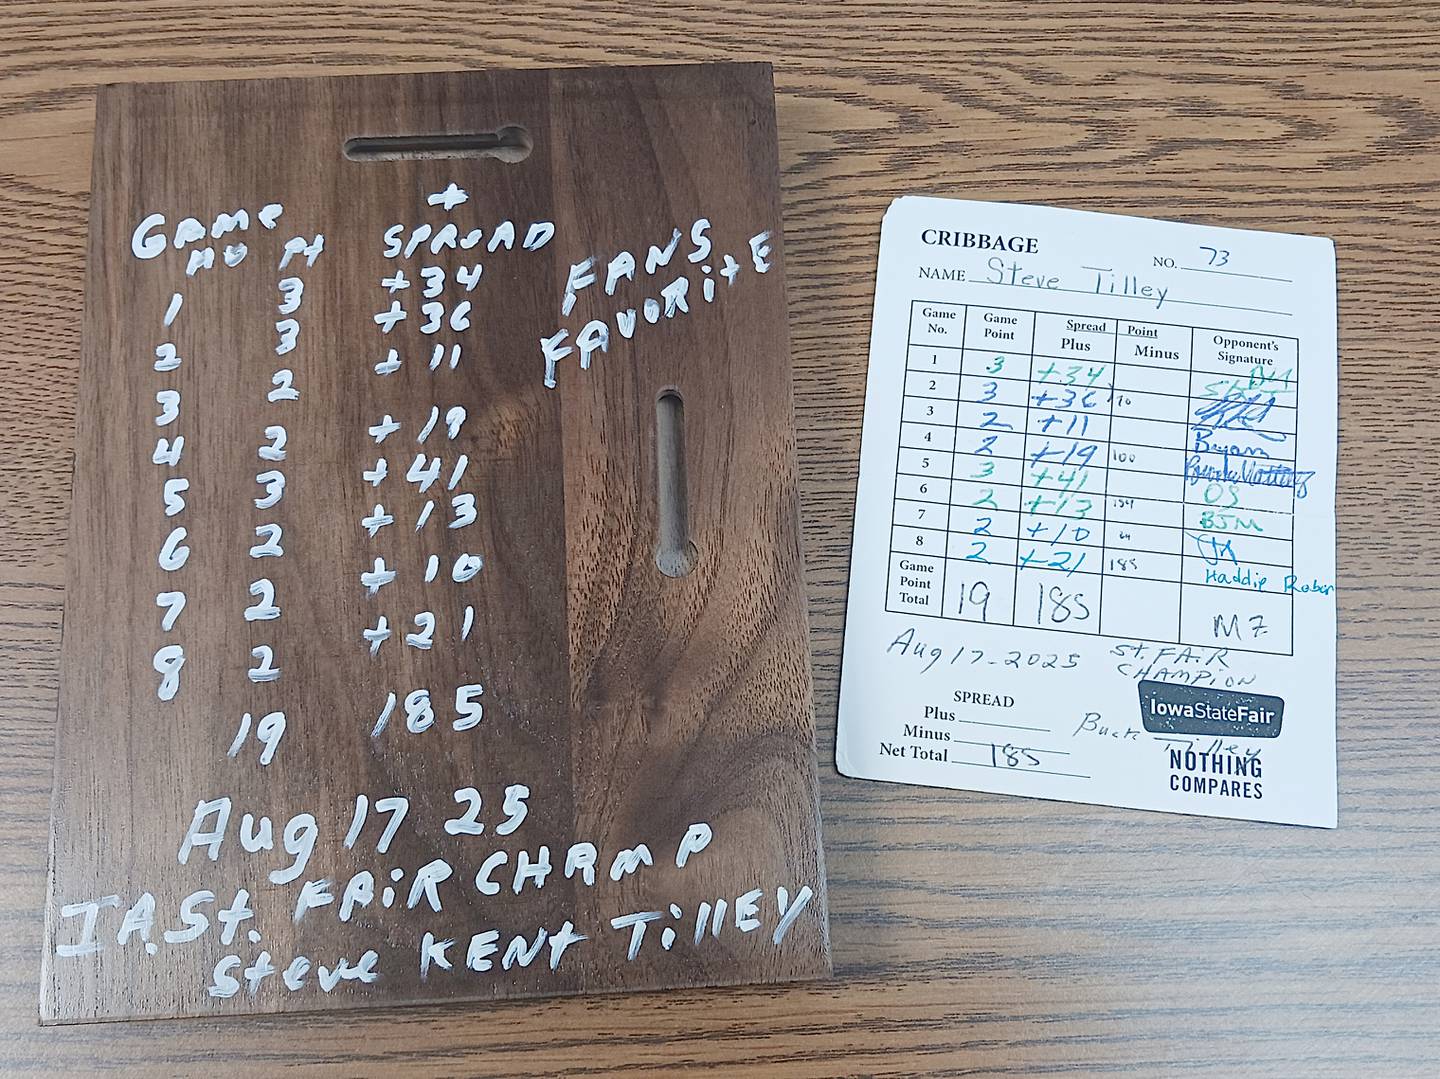 +
GAME NO Pt SPREAD
1 3 +34
2 3 +36
3 2 + 11
4 2 + 19
5 3 +41
6 2 + 13
7 2 + 10
8 2 +21
19 185
FANS
FAVORitE
Aug 17 25
IA.St. FAiR CHAMP
Steve KENt TillEY
CRIBBAGE
NO. 73
NAME Steve Tilley
Game No. Game Point Spread Plus Point Minus Opponent's Signature
1 3 +34
2 3 +36 70
3 2 +11
4 2 +19 100 Bryan
5 3 +41
6 2 +13 154 OS
7 2 +10 BJM
8 2 +21 185
Haddie Rober
Game Point Total 19 185 MZ
Aug 17-2025 St. FAiR
CHAMPiON
SPREAD
Plus
Minus
Net Total 185
Buck Tilley
IowaStateFair
NOTHING
COMPARES